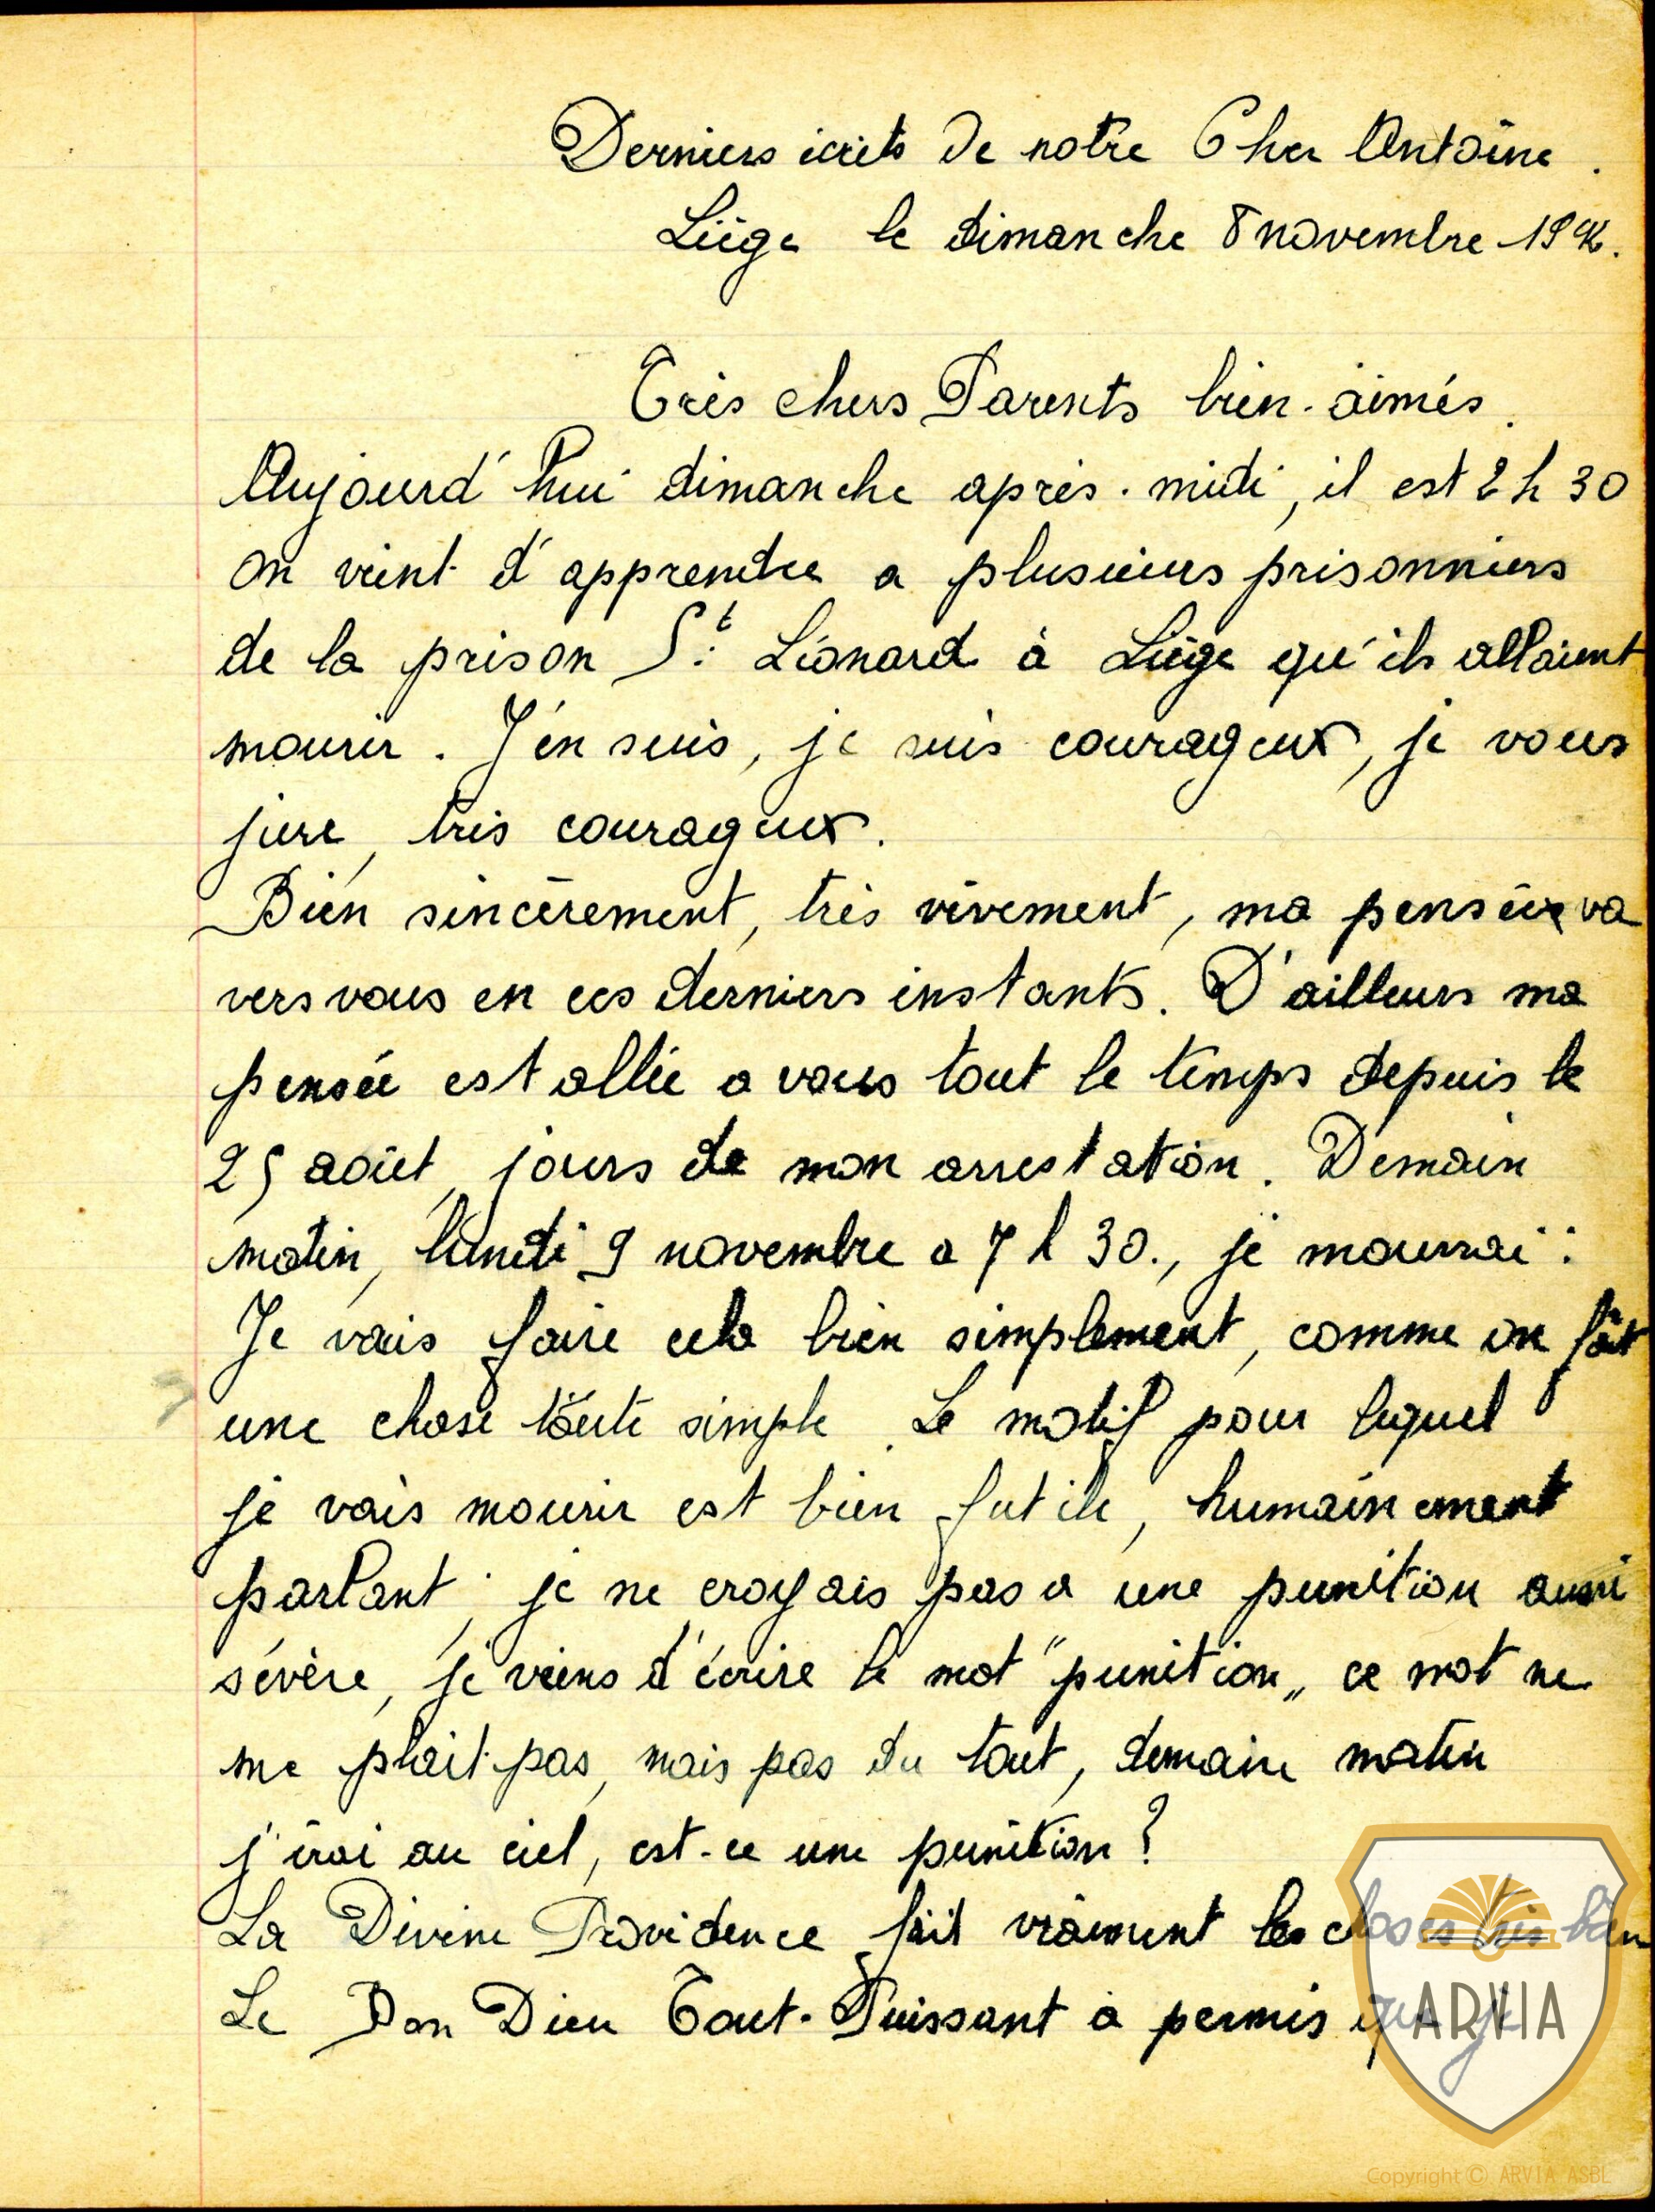 Derniers écrits de notre Cher Antoine.
Liège le dimanche 8 novembre 1942.
Très chers Parents bien-aimés.
Aujourd'hui dimanche après-midi, il est 2 h 30
on vient d'apprendre a plusieurs prisonniers
de la prison St. Léonard à Liège qu'ils allaient
mourir. J'en suis, je suis courageux, je vous
jure, très courageux.
Bien sincèrement, très vivement, ma pensée va
vers vous en ces derniers instants. D'ailleurs ma
pensée est allée a vous tout le temps depuis le
25 août, jours de mon arrestation. Demain
matin, lundi 9 novembre a 7 h 30., je mourrai :
Je vais faire cela bien simplement, comme on fait
une chose toute simple. Le motif pour lequel
je vais mourir est bien futile, humainement
parlant ; je ne croyais pas a une punition aussi
sévère, je viens d'écrire le mot "punition„ ce mot ne
me plait pas, mais pas du tout, demain matin
j'irai au ciel, est-ce une punition ?
La Divine Providence fait vraiment les choses très bien
Le Bon Dieu Tout-Puissant a permis que je
ARVIA
Copyright © ARVIA ASBL